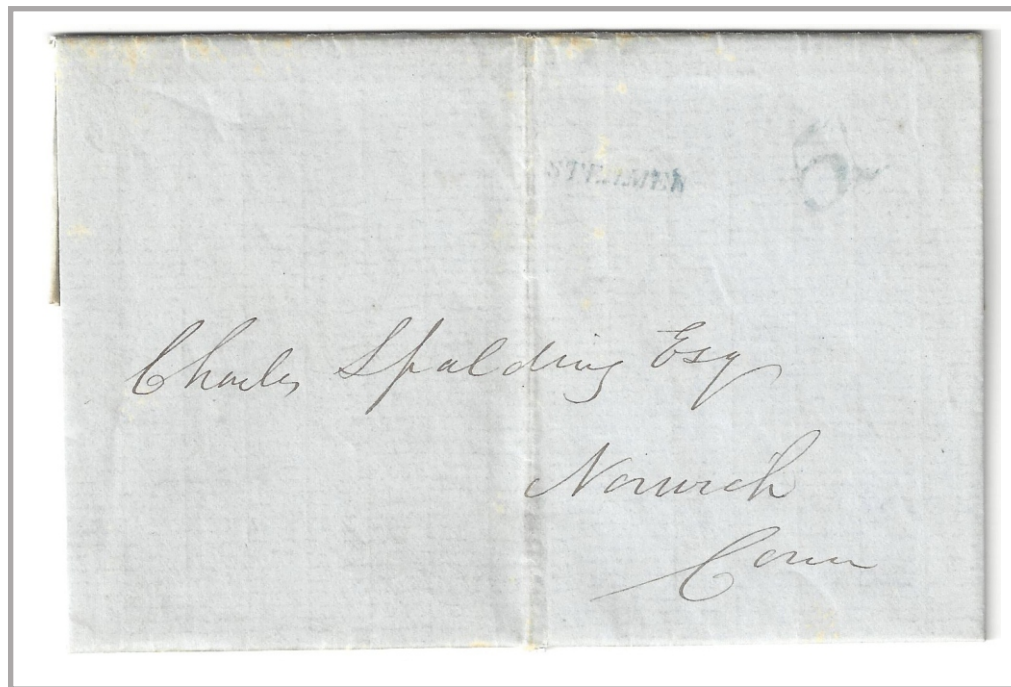 STEAMER
6
Charles Spalding Esq
Norwich
Conn